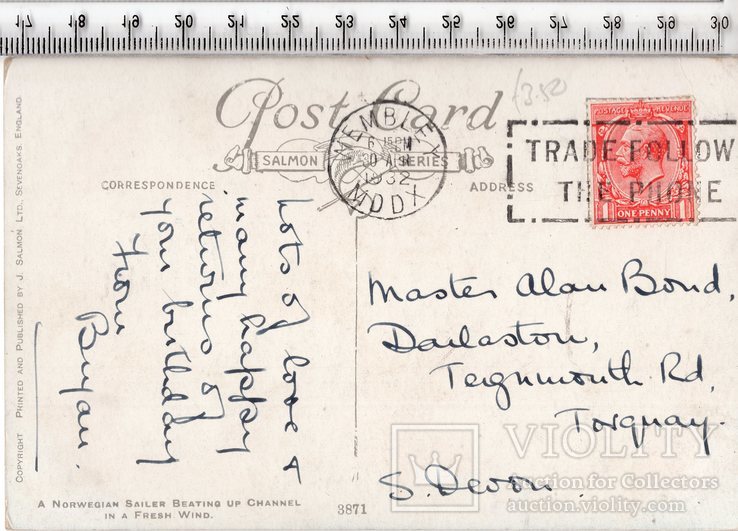 17 18 19 20 21 22 23 24 25 26 27 28 29 30
Post Card
£3.50
SALMON SERIES
WEMBLEY
6 15 PM
30 APR
1932
MDDX
TRADE FOLLOWS
THE PHONE
POSTAGE REVENUE
ONE PENNY
CORRESPONDENCE
ADDRESS
COPYRIGHT PRINTED AND PUBLISHED BY J. SALMON LTD., SEVENOAKS, ENGLAND.
Lots of love &
many happy
returns of
your birthday
from
Bryan.
Master Alan Bond,
Teignmouth Rd,
Torquay.
S. Devon.
A NORWEGIAN SAILER BEATING UP CHANNEL
IN A FRESH WIND.
3871
VIOLITY
Auction for Collectors
auction.violity.com